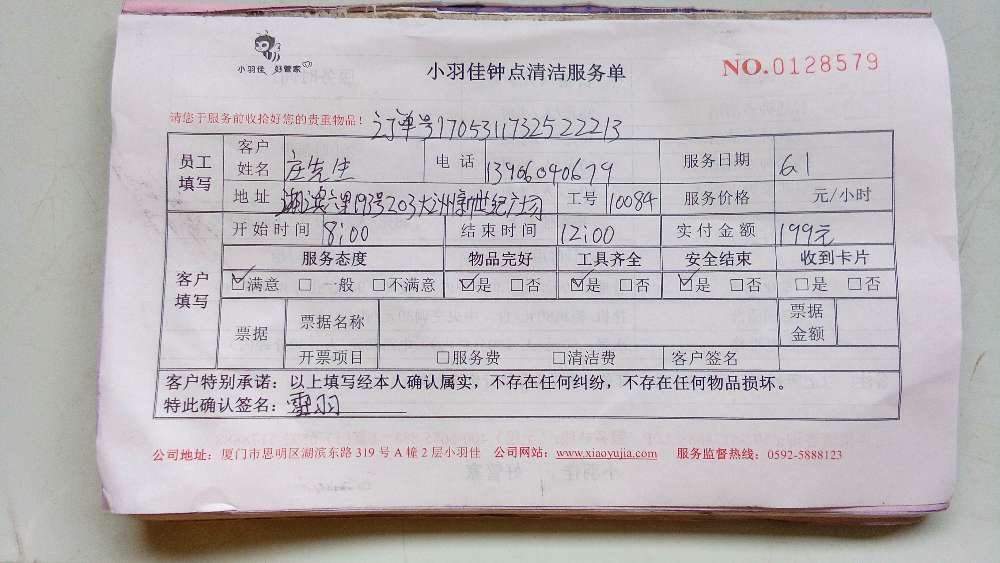 小羽佳 好管家
小羽佳钟点清洁服务单
NO.0128579
请您于服务前收拾好您的贵重物品！ 订单号170531173252 2213
员工填写 客户姓名 庄先生 电话 13906040679 服务日期 6.1
地址 湖滨六里193号203大洲新世纪广场 工号 10084 服务价格 元/小时
客户填写 开始时间 8:00 结束时间 12:00 实付金额 199元
服务态度 物品完好 工具齐全 安全结束 收到卡片
☑满意 □一般 □不满意 ☑是 □否 ☑是 □否 ☑是 □否 □是 □否
票据 票据名称 票据金额
开票项目 □服务费 □清洁费 客户签名
客户特别承诺：以上填写经本人确认属实，不存在任何纠纷，不存在任何物品损坏。
特此确认签名：
公司地址：厦门市思明区湖滨东路319号A幢2层小羽佳 公司网站：www.xiaoyujia.com 服务监督热线：0592-5888123